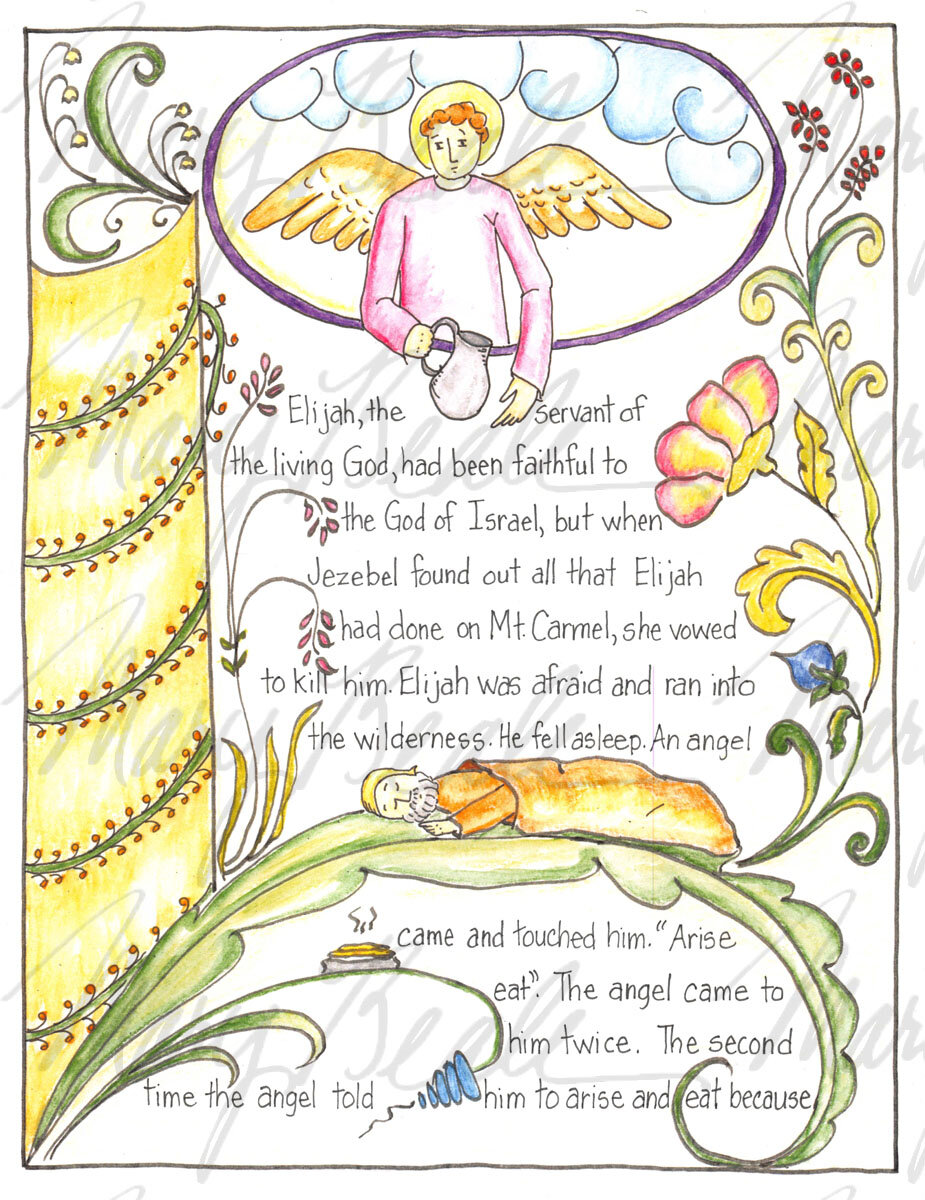 Elijah, the servant of
the living God, had been faithful to
the God of Israel, but when
Jezebel found out all that Elijah
had done on Mt. Carmel, she vowed
to kill him. Elijah was afraid and ran into
the wilderness. He fell asleep. An angel
came and touched him. "Arise
eat". The angel came to
him twice. The second
time the angel told him to arise and eat because
Mary Beale